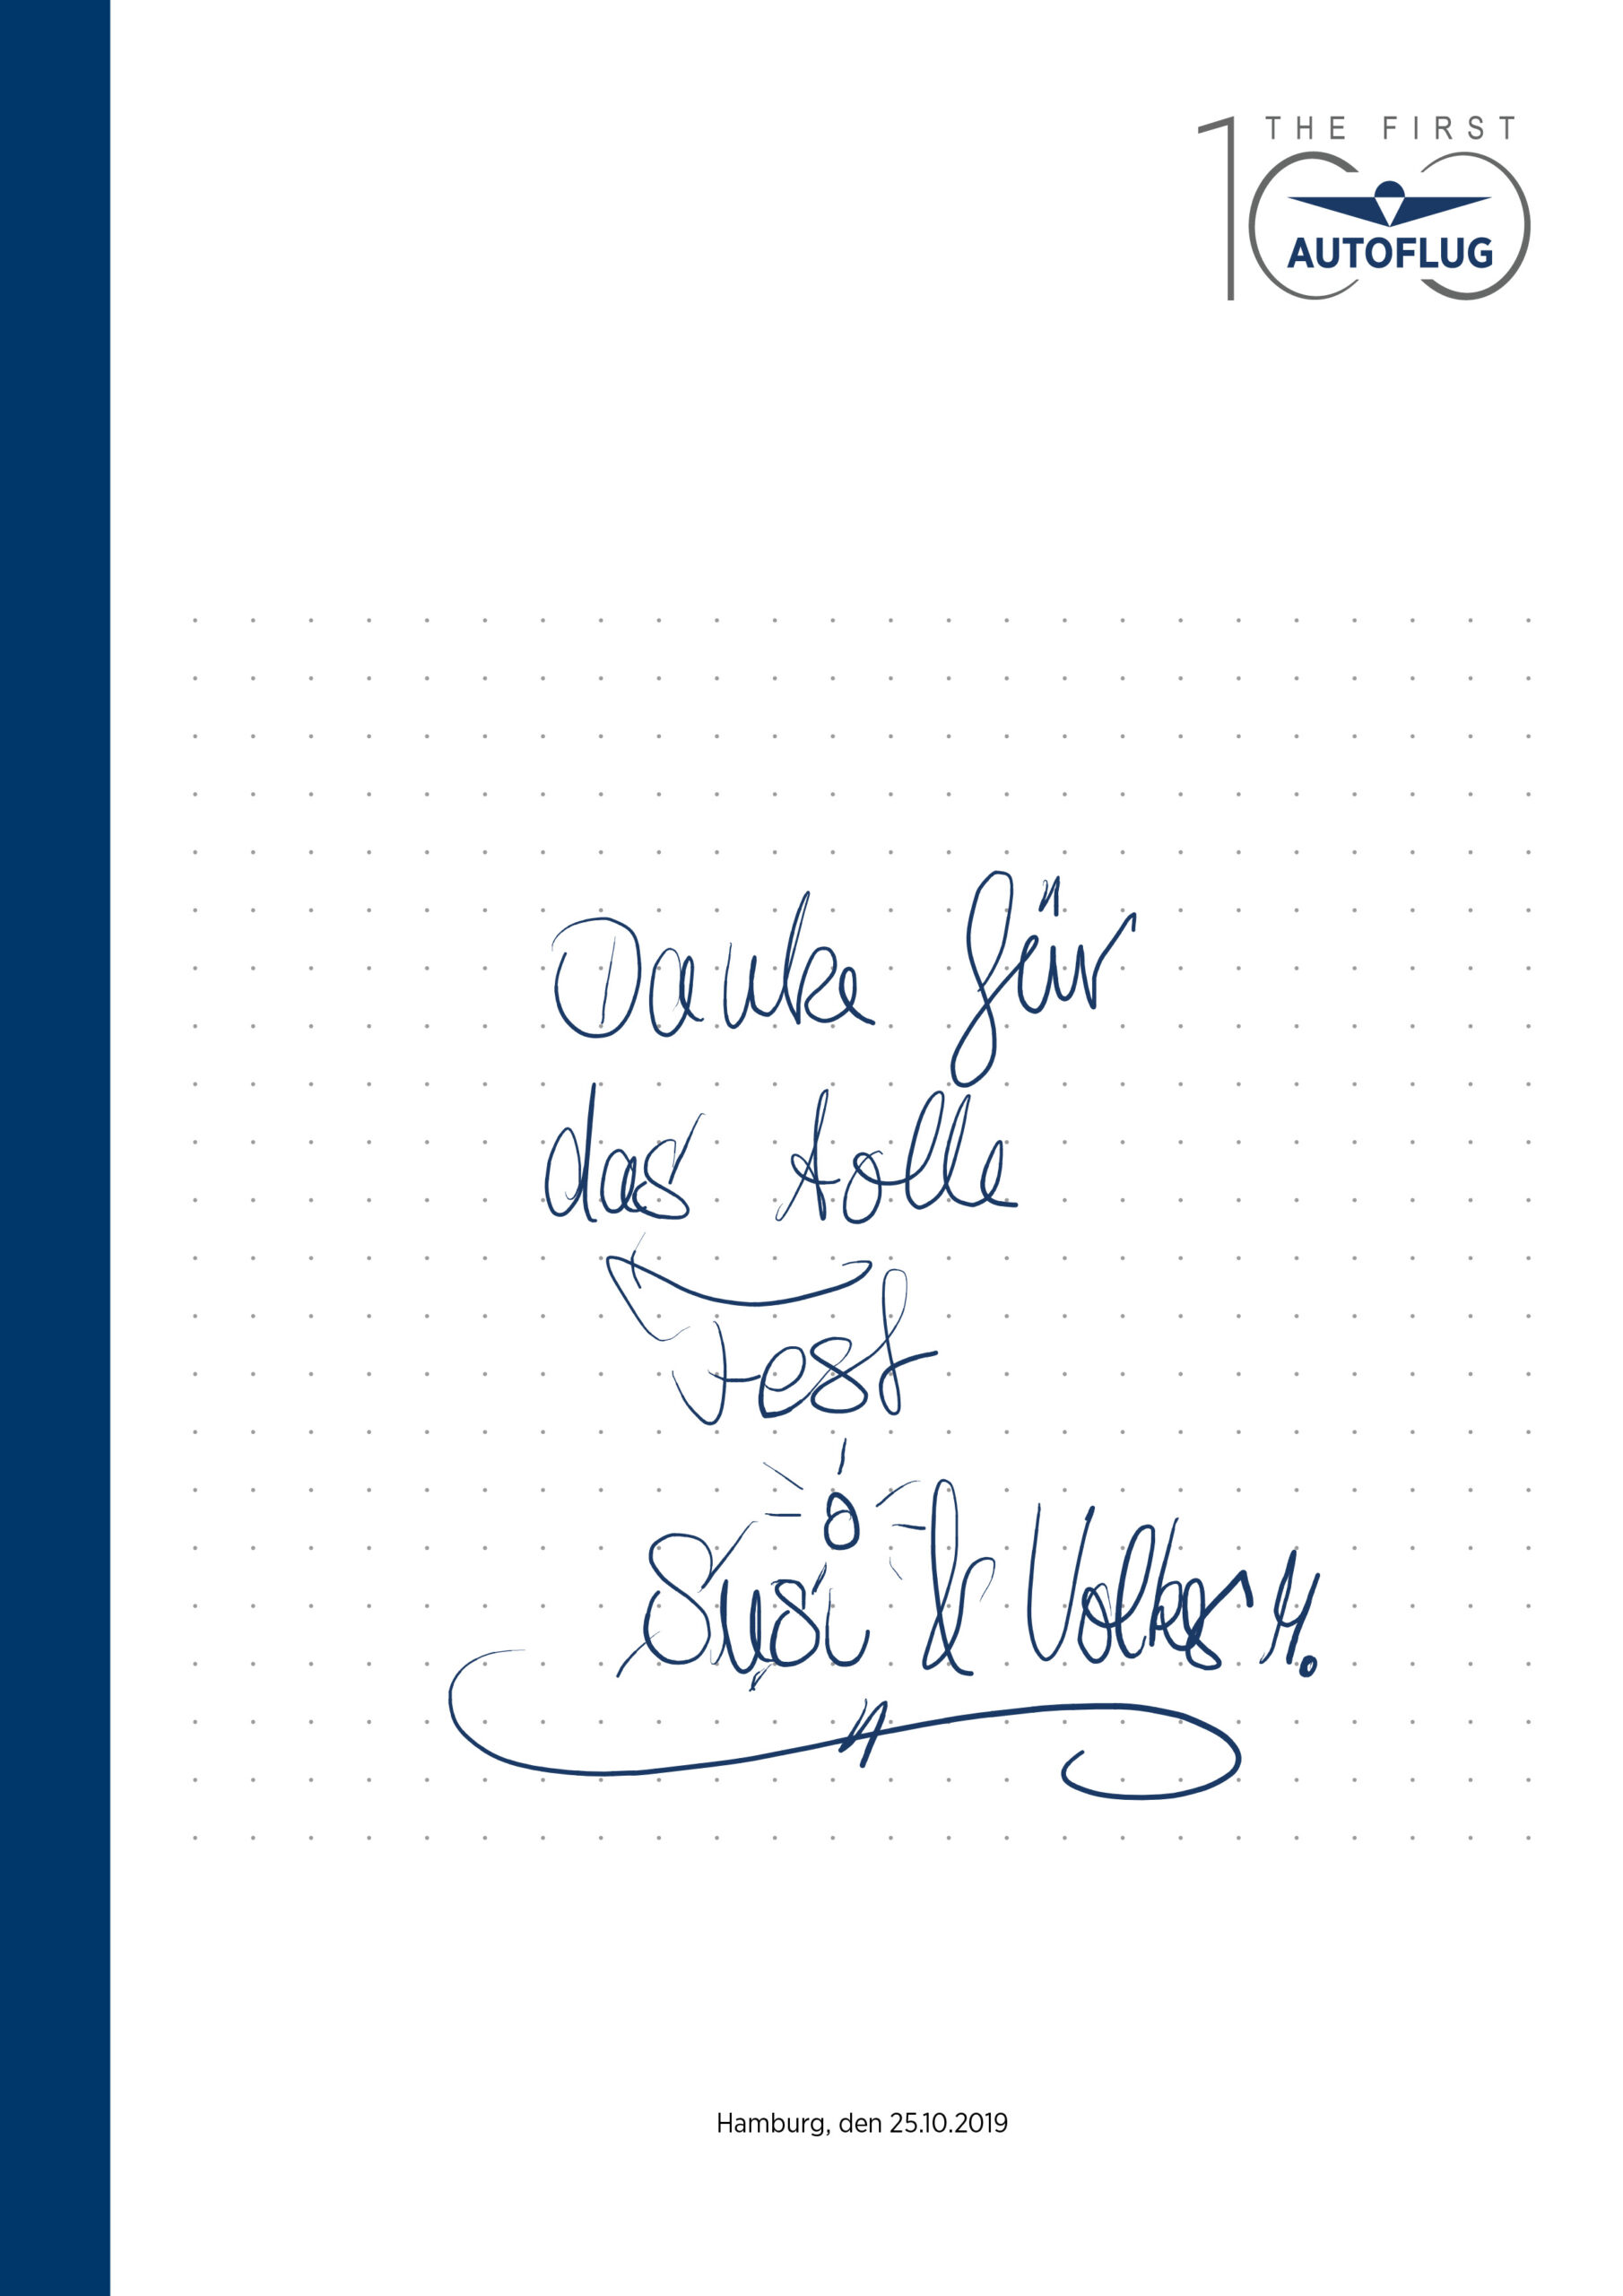 THE FIRST
100
AUTOFLUG
Danke für
das tolle
Fest
Susi & Volker!
Hamburg, den 25.10.2019